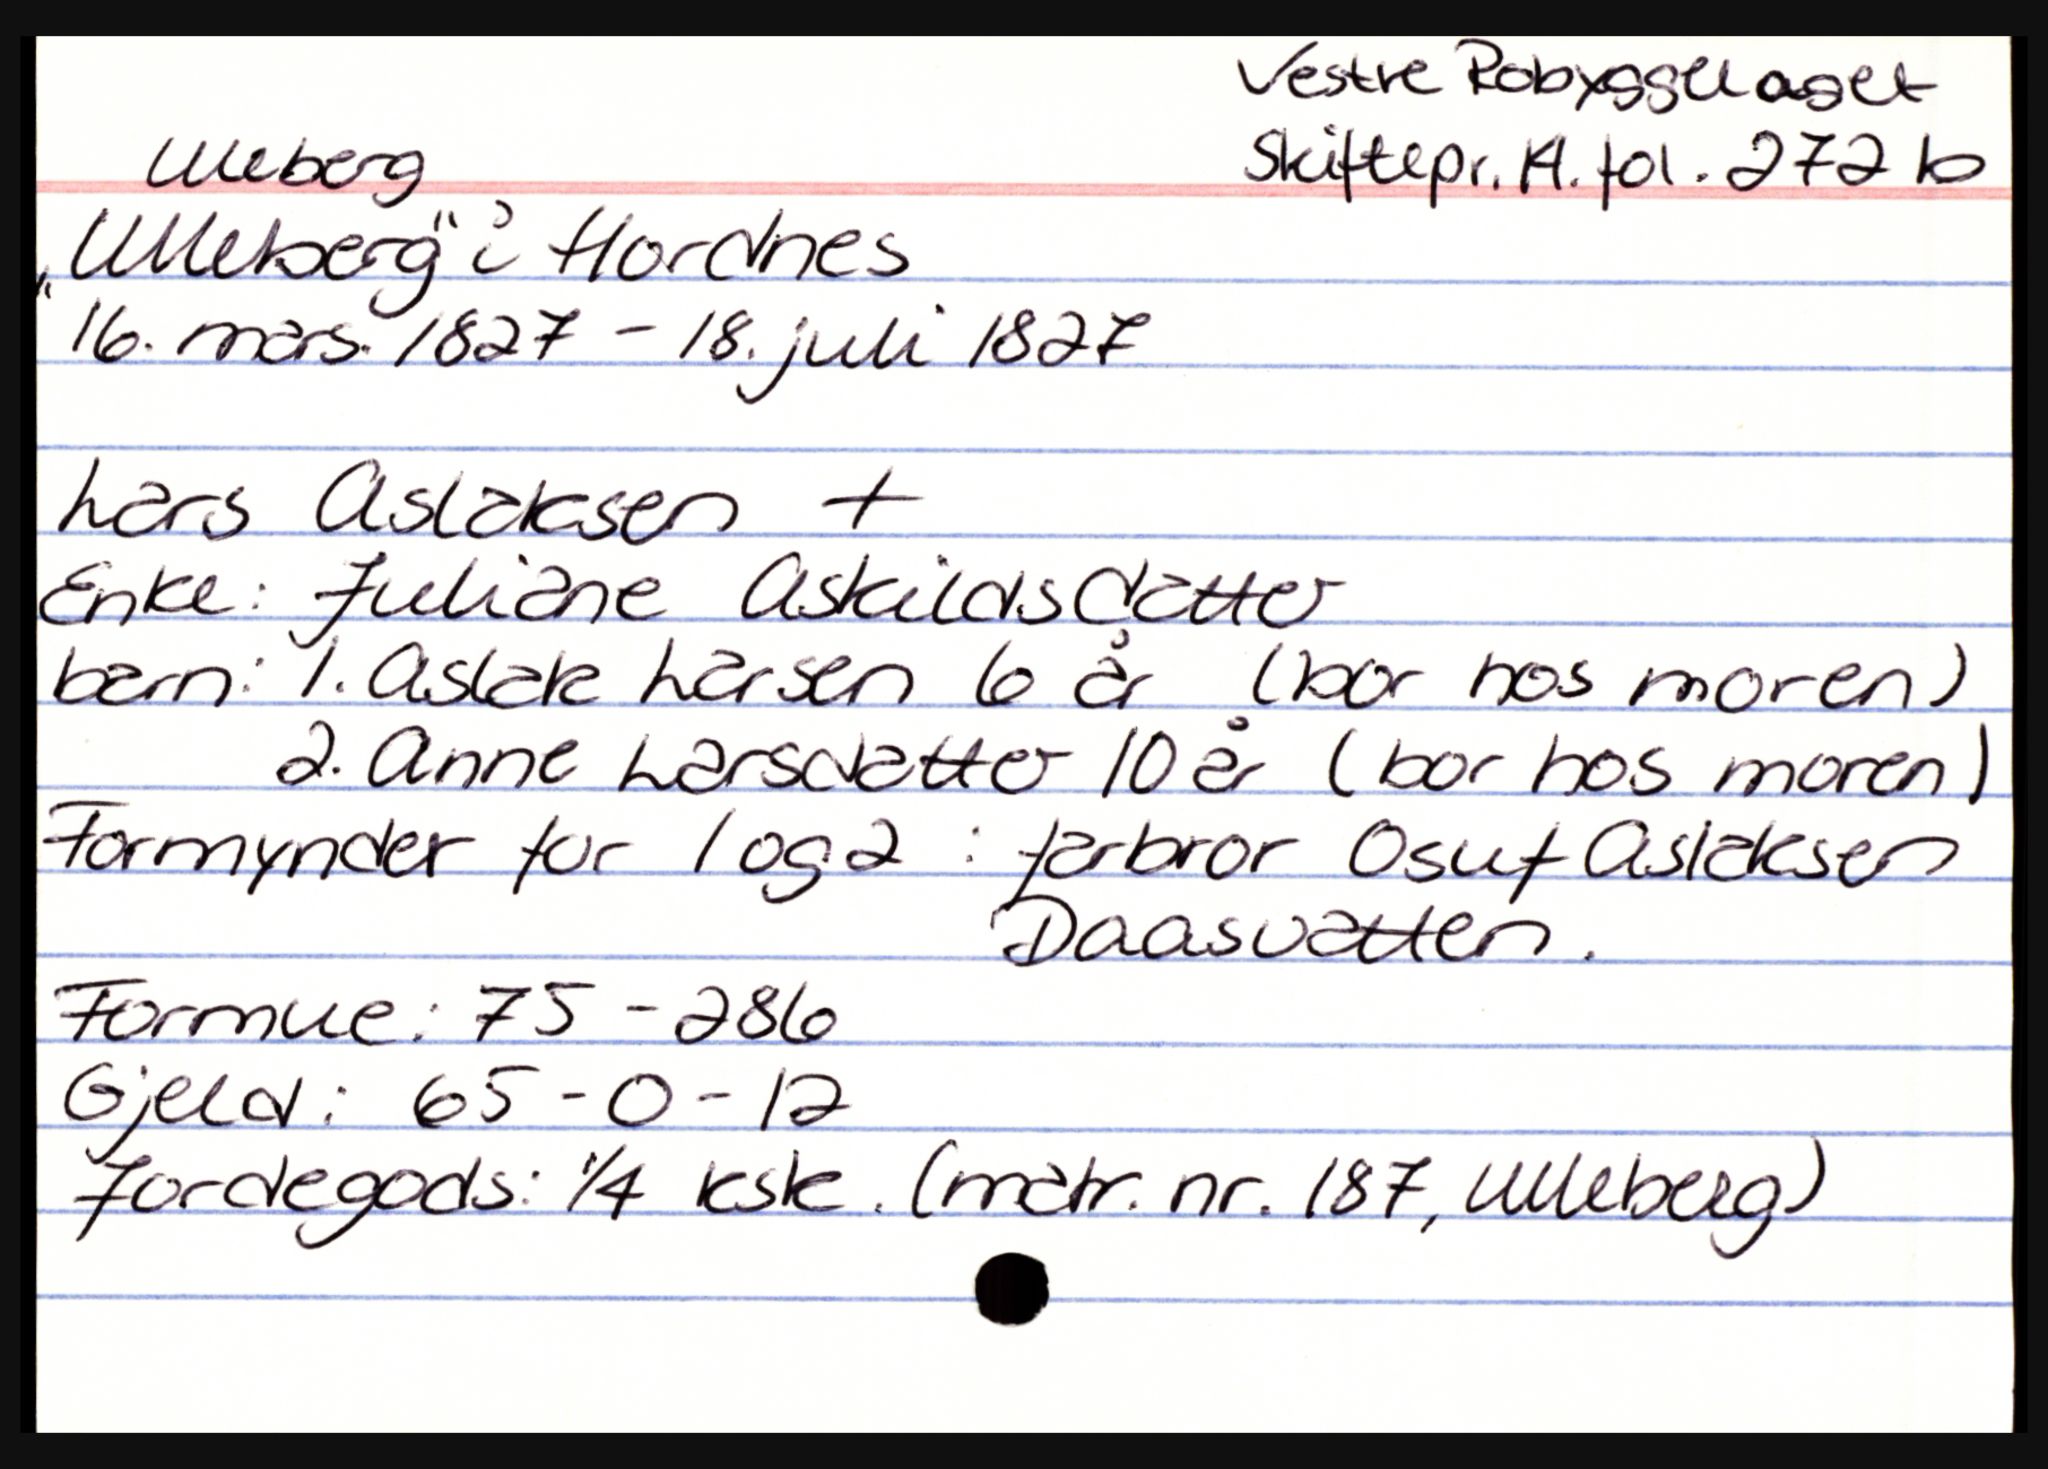 Vestre Robyggelaget
Skiftepr. 14. fol. 272 b
Ulleberg
"Ulleberg" i Hordnes
16. mars. 1827 - 18. juli 1827
Lars Aslaksen +
Enke: Juliane Askildsdatter
barn: 1. Aslak Larsen 6 år (bor hos moren)
2. Anne Larsdatter 10 år (bor hos moren)
Formynder for 1 og 2 : farbror Osuf Aslaksen
Daasvatten.
Formue: 75 - 286
Gjeld: 65 - 0 - 12
Jordegods: 1/4 ksk. (matr. nr. 187, Ulleberg)